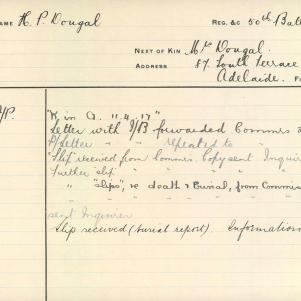 NAME H. P. Dougal REG. &C 50th Batt
NEXT OF KIN Mr Dougal.
ADDRESS 87 South Terrace
Adelaide.
"K in A. 11.4.17"
Letter with I/B forwarded Commrs
P/Letter " " repeated to "
"Slip received from Commrs. Copy sent Inquirer
Further slip " "
" "slips", re death & burial, from Commrs
sent Inquirer
Slip received (burial report). Information